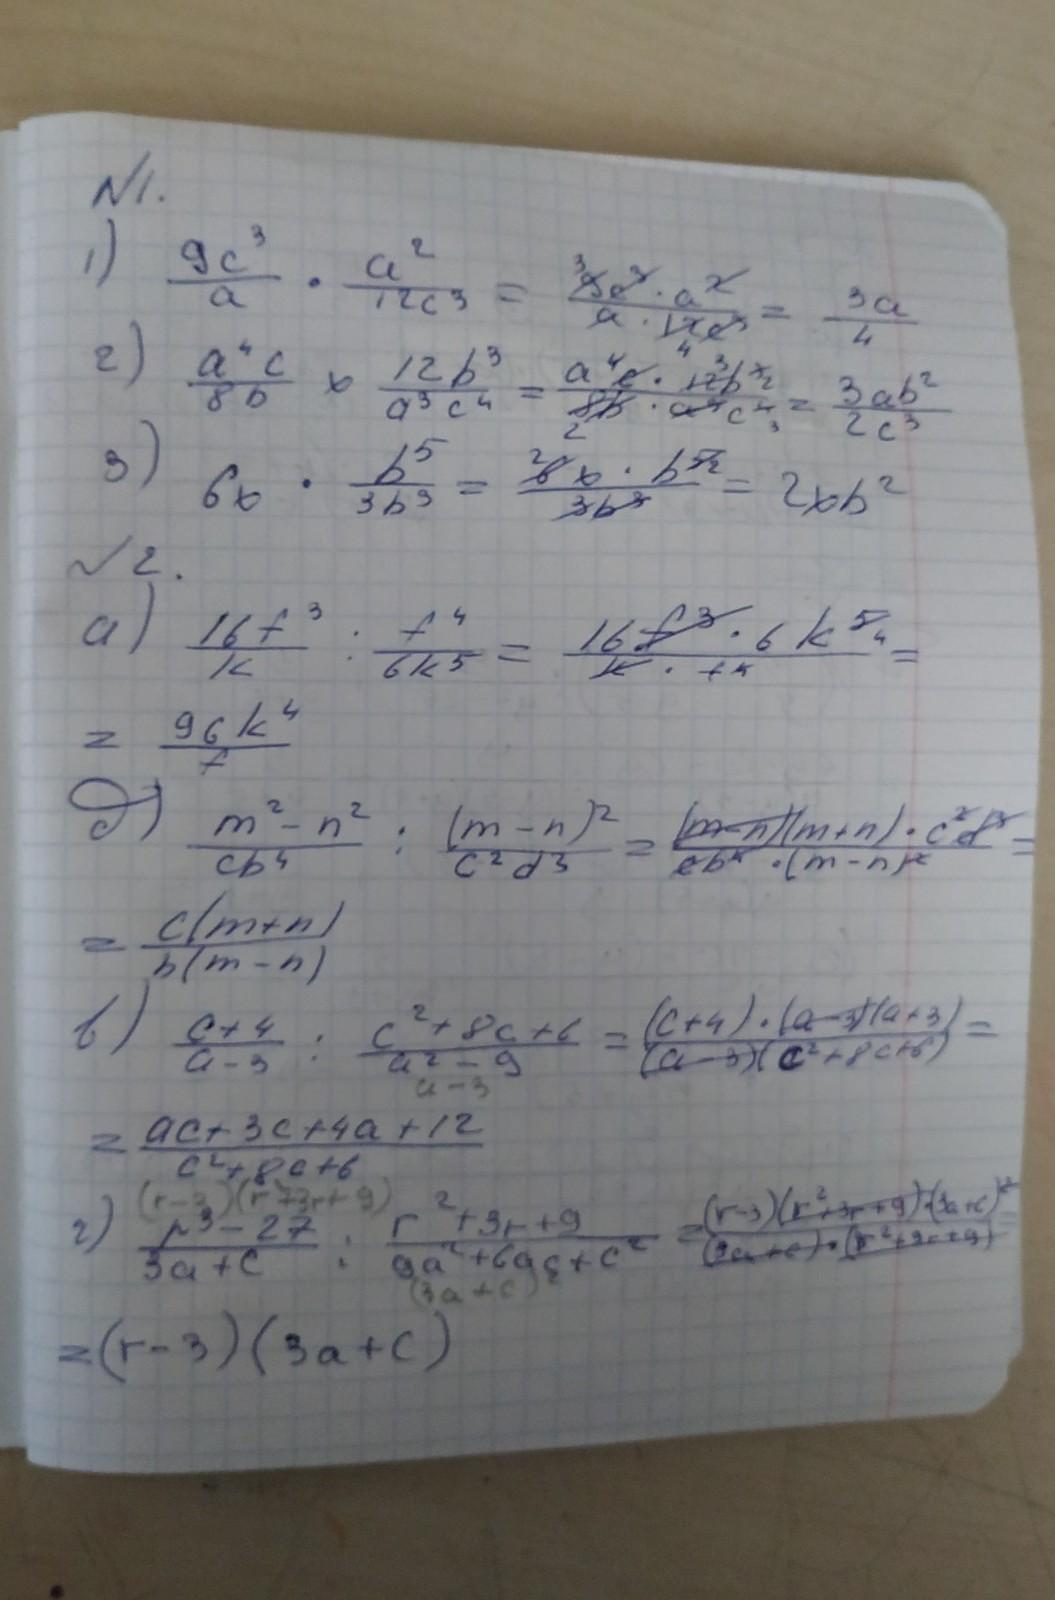 №1.
1) 9c³/a · a²/12c³ = 9c³ · a²/a · 12c³ = 3a/4
2) a⁴c/8b × 12b³/a³c⁴ = a⁴c · 12b³/8b · a³c⁴ = 3ab²/2c³
3) 6x · b⁵/3b³ = 6x · b⁵/3b³ = 2xb²
√2.
а) 16f³/k : f⁴/6k⁵ = 16f³ · 6k⁵/k · f⁴ =
= 96k⁴/f
б) m²-n²/cb⁴ : (m-n)²/c²d³ = (m-n)(m+n) · c²d³/cb⁴ · (m-n)² =
= c(m+n)/b(m-n)
в) c+4/a-3 : c²+8c+6/a²-9 = (c+4) · (a-3)(a+3)/(a-3)(c²+8c+6) =
a-3
= ac+3c+4a+12/c²+8c+6
(r-3)(r²+3r+9)
г) r³-27/3a+c : r²+3r+9/9a²+6ac+c² = (r-3)(r²+3r+9)·(3a+c)²/(3a+c)·(r²+3r+9) =
(3a+c)²
= (r-3)(3a+c)